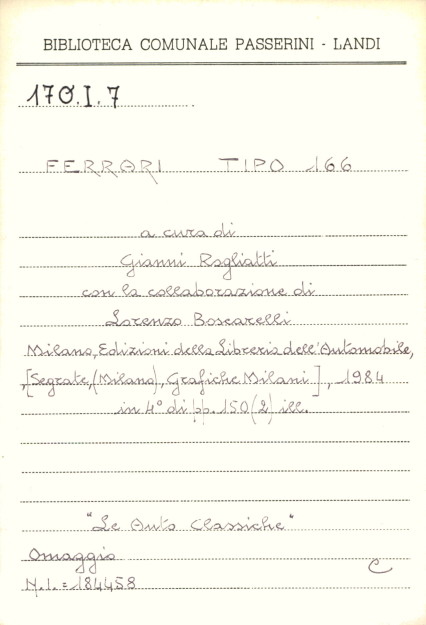 BIBLIOTECA COMUNALE PASSERINI - LANDI
170.I.7
FERRARI TIPO 166
a cura di
Gianni Rogliatti
con la collaborazione di
Lorenzo Boscarelli
Milano, Edizioni della Libreria dell'Automobile,
[Segrate, (Milano), Grafiche Milani], 1984
in 4° di pp. 150 (2) ill.
"Le Auto Classiche"
Omaggio
C
N.I. = 184458